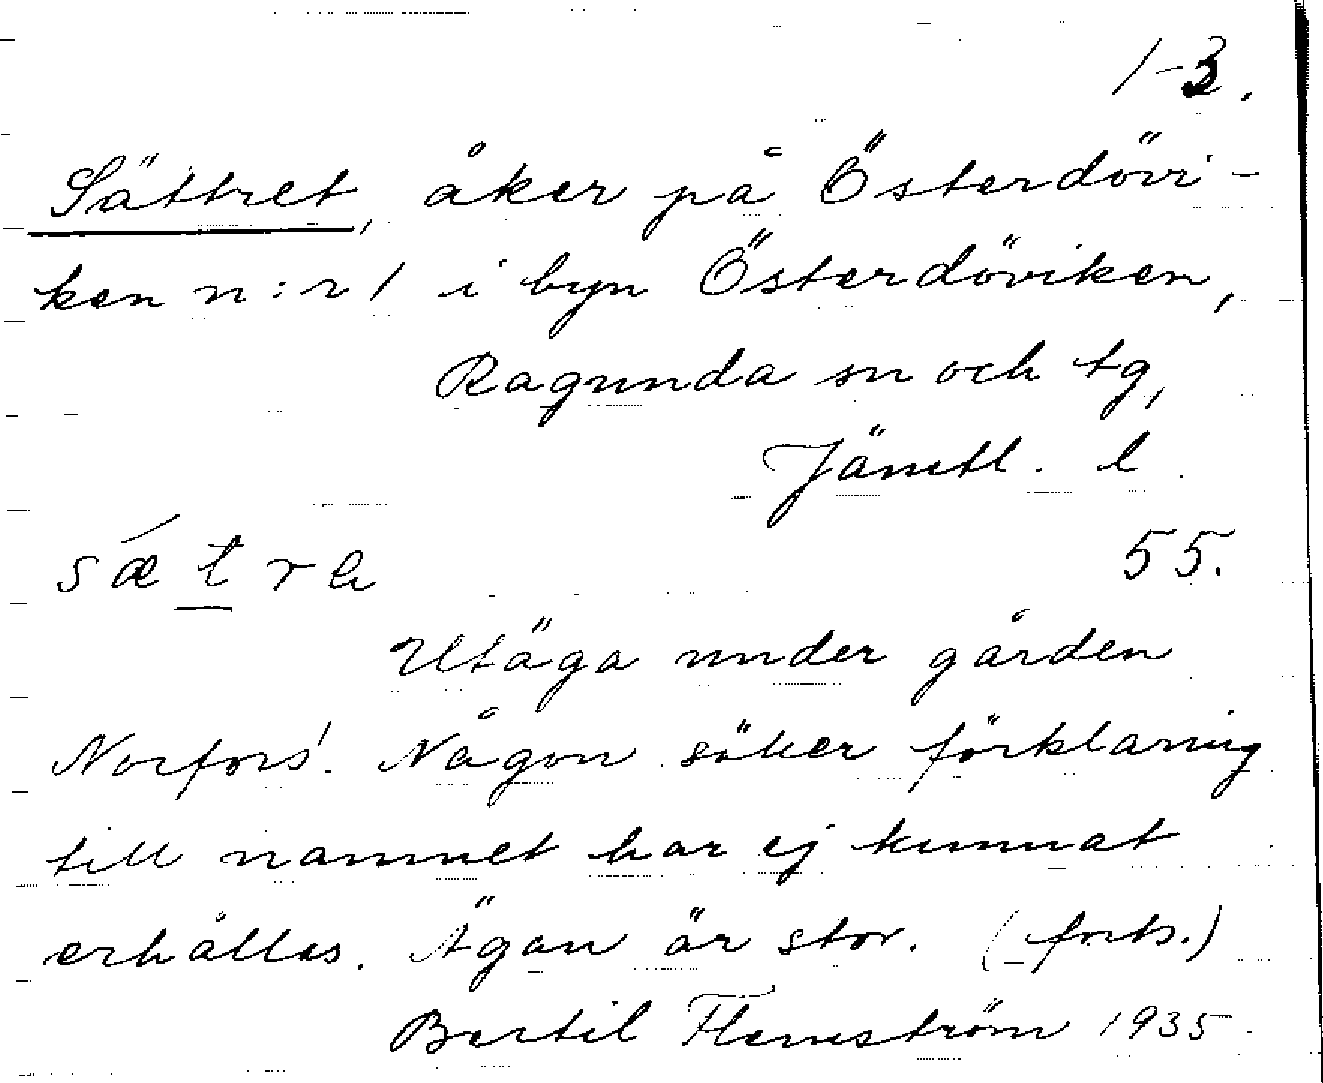 1-3.
Sättret, åker på Österdövi-
ken n:r 1 i byn Österdöviken,
Ragunda sn och tg,
Jämtl. l.
sǽtra 55.
Utäga under gården
Norfors'. Någon säker förklaring
till namnet har ej kunnat
erhållas. Ägan är stor. (forts.)
Bertil Flemström 1935.